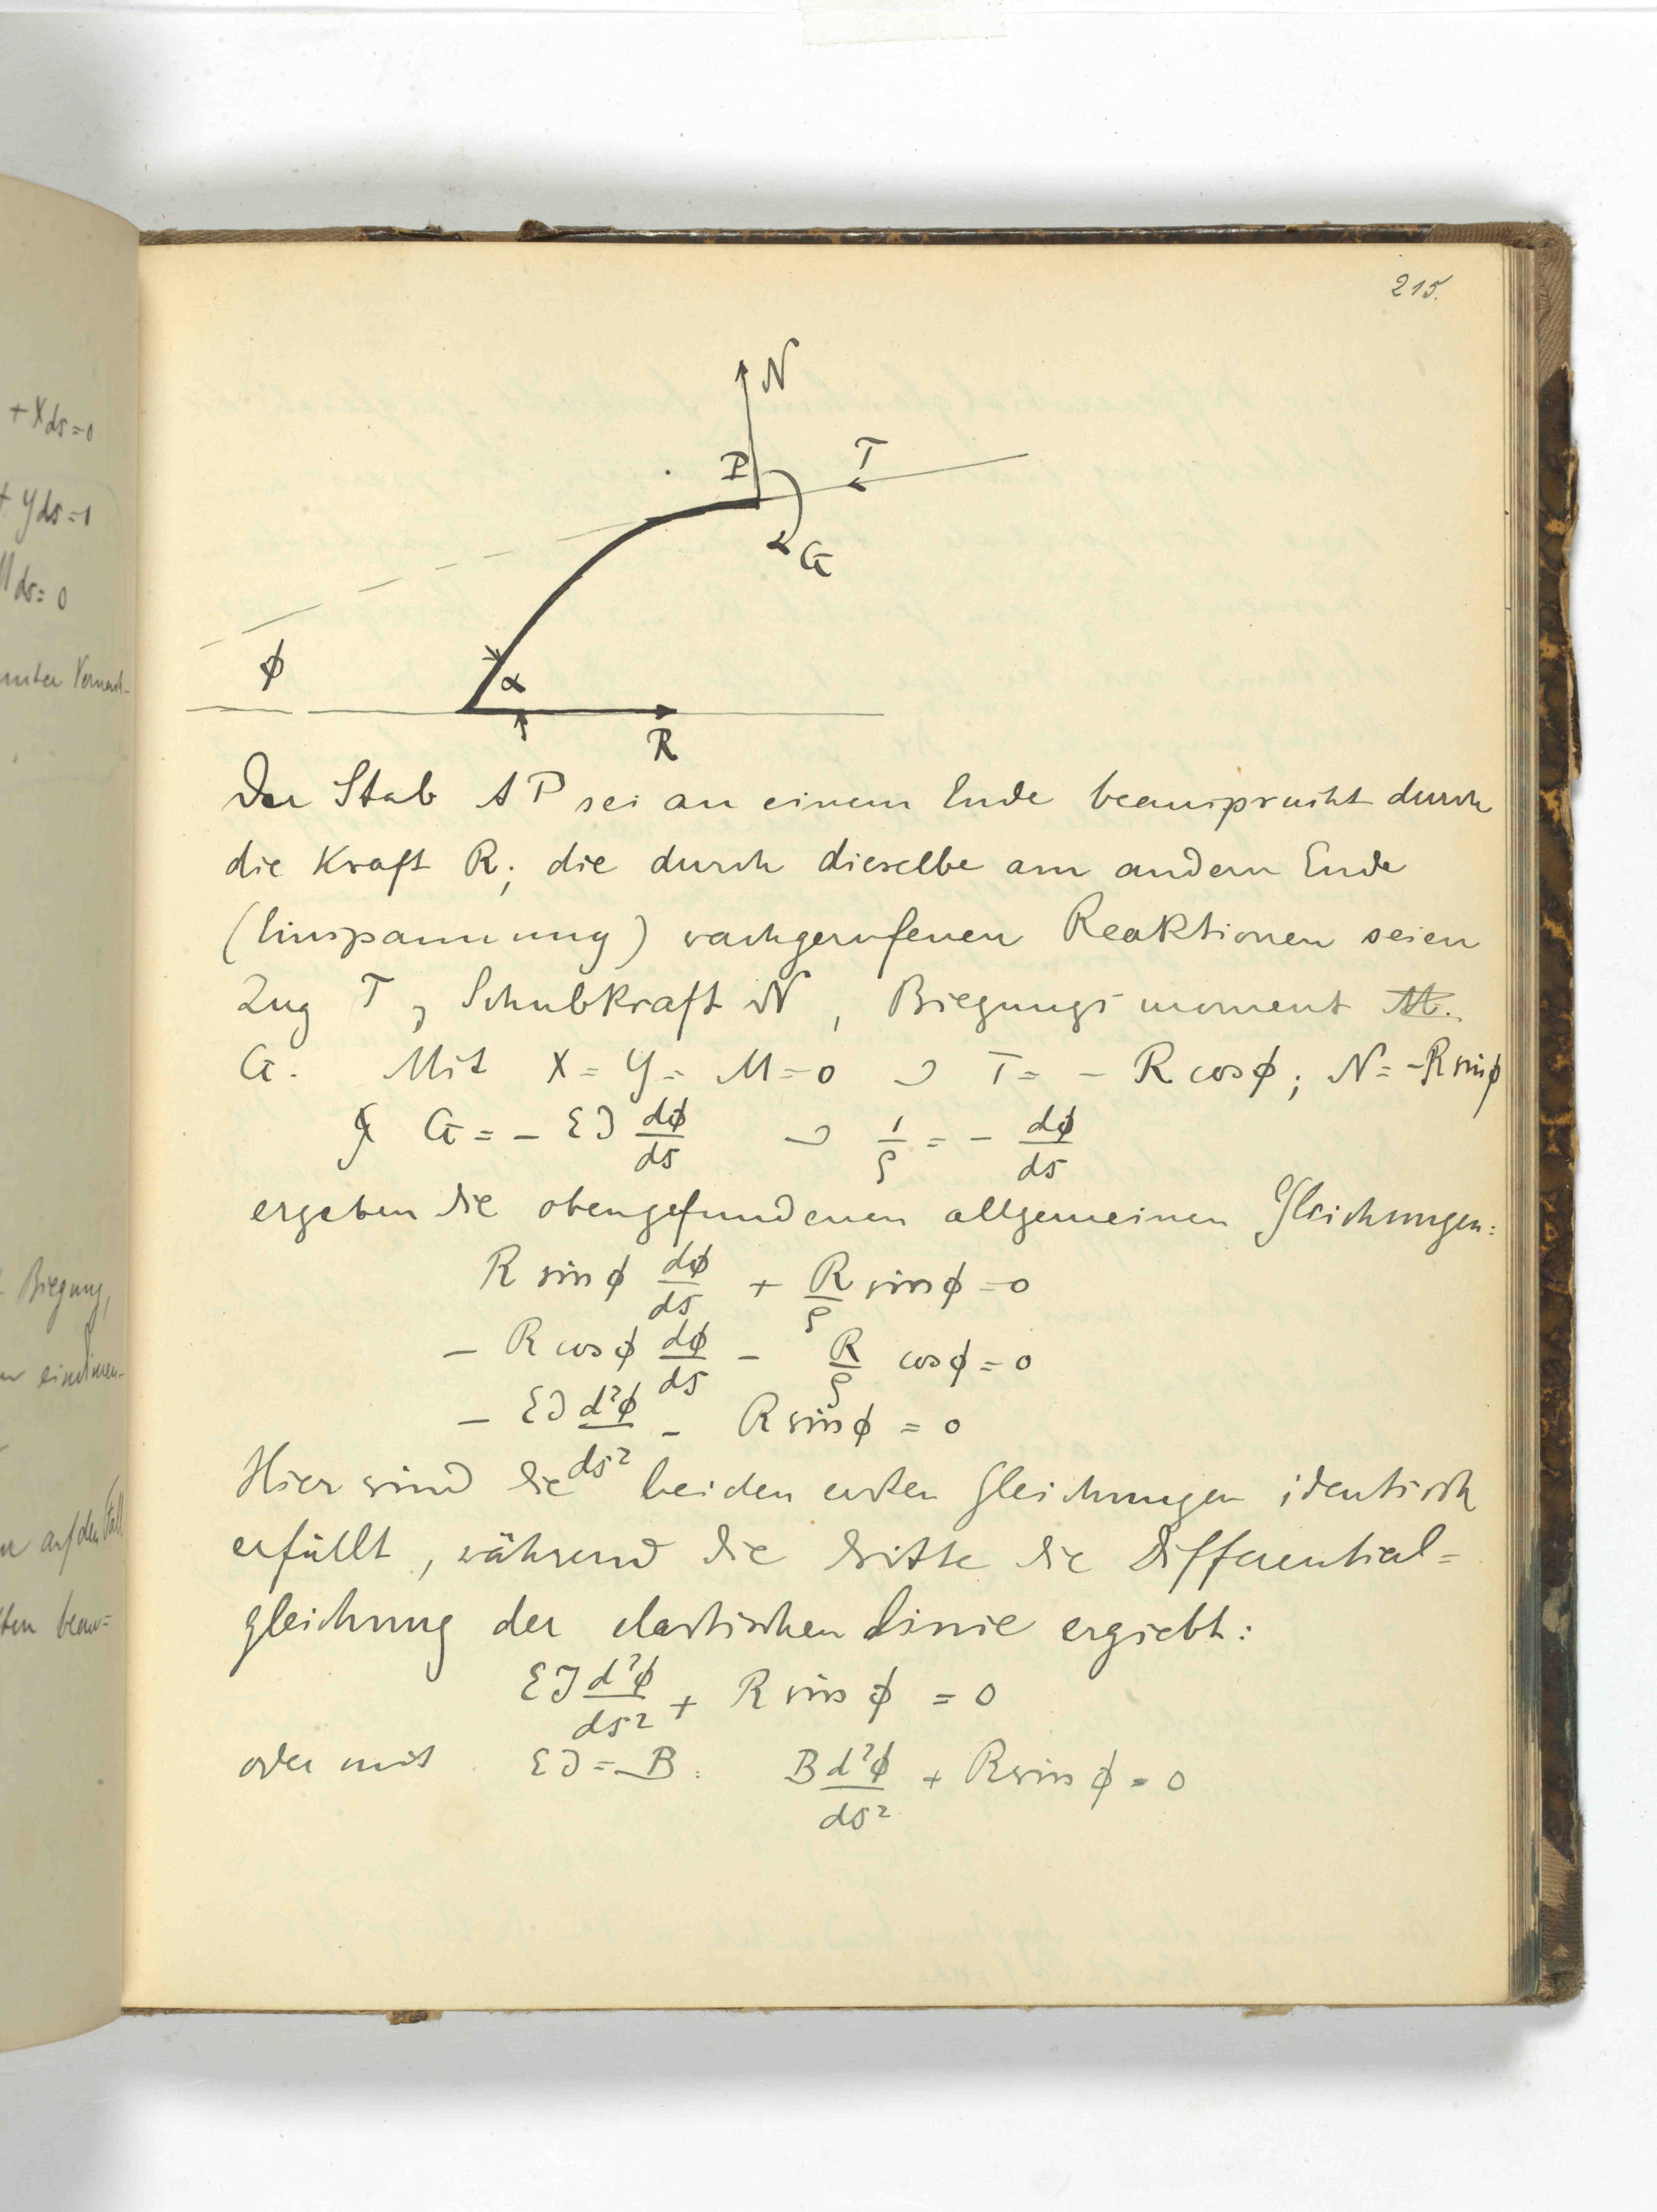 + Xds=0
+ Yds=0
Mds=0
unter Vernach-
Biegung,
eindimen-
auf den Fall
ten bean=
215.
N
P
T
G
ϕ
α
R
Der Stab AP sei an einem Ende beansprucht durch
die Kraft R; die durch dieselbe am andern Ende
(Einspannung) wachgerufenen Reaktionen seien
Zug T, Schubkraft N, Biegungsmoment M.
G. Mit X = Y = M = 0 ⊃ T = - R cos ϕ; N = -R sin ϕ
& G = - EJ dϕ/ds ⊃ 1/ρ = - dϕ/ds
ergeben die obengefundenen allgemeinen Gleichungen:
R sin ϕ dϕ/ds + R/ρ sin ϕ = 0
- R cos ϕ dϕ/ds - R/ρ cos ϕ = 0
- EJ d²ϕ/ds² - R sin ϕ = 0
Hier sind die beiden ersten Gleichungen identisch
erfüllt, während die dritte die Differential=
gleichung der elastischen Linie ergiebt:
EJ d²ϕ/ds² + R sin ϕ = 0
oder mit EJ = B: B d²ϕ/ds² + R sin ϕ = 0